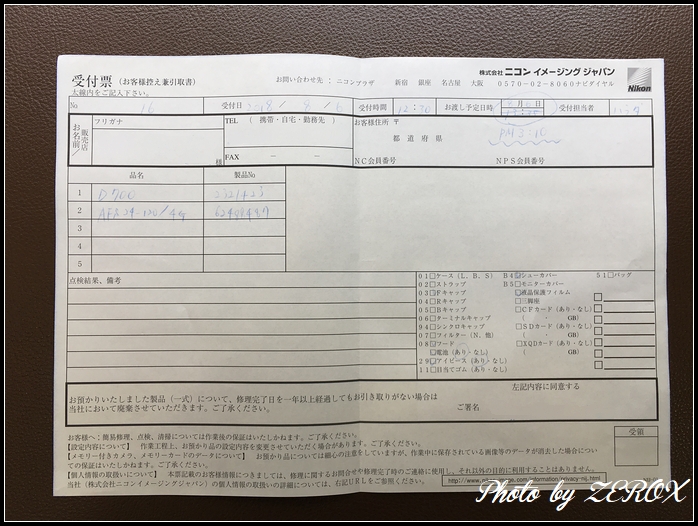 受付票(お客様控え兼引取書)
お問い合わせ先：ニコンプラザ 新宿 銀座 名古屋 大阪
株式会社ニコン イメージング ジャパン
0570-02-8060ナビダイヤル
Nikon
太線内をご記入下さい。
No 16 受付日 2018/8/6 受付時間 12:20 お渡し予定日時 受付担当者
お名前/販売店
フリガナ
様
TEL (携帯・自宅・勤務先)
FAX
お客様住所 〒
都道府県
PM3:10
NC会員番号 NPS会員番号
品名 製品No
1 D700 2321423
2
3
4
5
点検結果、備考
01□ケース(L、B、S)
02□ストラップ
03□Fキャップ
04□Rキャップ
05□Bキャップ
06□ターミナルキャップ
94□シンクロキャップ
07□フィルター(N、他)
08□フード
□電池(あり・なし)
29□アイピース(あり・なし)
11□目当てゴム(あり・なし)
B4□シューカバー
B5□モニターカバー
□液晶保護フィルム
□三脚座
□CFカード(あり・なし)
( - GB)
□SDカード(あり・なし)
( - GB)
□XQDカード(あり・なし)
( - GB)
51□バッグ
お預かりいたしました製品(一式)について、修理完了日を一年以上経過してもお引き取りがない場合は
当社において廃棄させていただきます。ご了承ください。
左記内容に同意する
ご署名
お客様へ：簡易修理、点検、清掃については作業後の保証はいたしかねます。ご了承ください。
【設定内容について】 作業工程上、お預かり品の設定内容を変更させていただく場合がありますが、ご了承ください。
【メモリー付きカメラ、メモリーカードのデータについて】 お預かり品については細心の注意をしていますが、作業中に保存されている画像等のデータが消失した場合につい
ての保証はいたしかねます。ご了承ください。
【個人情報の取扱いについて】 本票記載のお客様情報につきましては、修理に関するお問合せや修理完了時のご連絡に使用し、それ以外の目的に利用することはありません。
当社(株式会社ニコンイメージングジャパン)の個人情報の取扱いの詳細については、右記URLをご参照ください。
受領
Photo by ZEROX